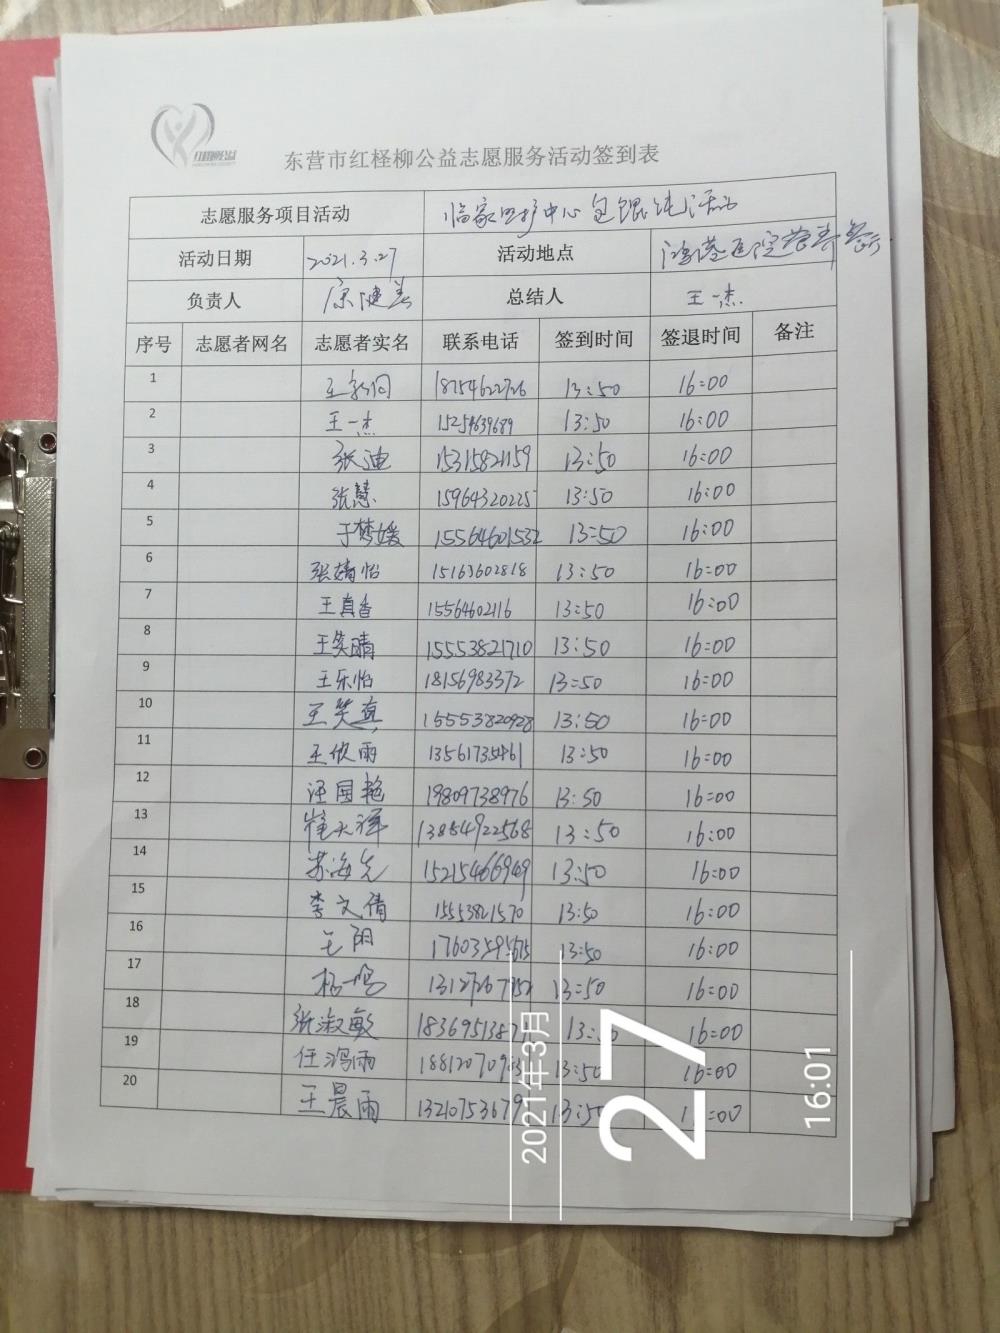 红柽柳公益
东营市红柽柳公益志愿服务活动签到表
志愿服务项目活动 临家照护中心包馄饨活动
活动日期 2021.3.27 活动地点 鸿港医院营养餐厅
负责人 总结人 王一杰
序号 志愿者网名 志愿者实名 联系电话 签到时间 签退时间 备注
1 18754622726 13:50 16:00
2 王一杰 15254639689 13:50 16:00
3 张迪 15315821159 13:50 16:00
4 张慧 15964320225 13:50 16:00
5 于梦媛 15564601532 13:50 16:00
6 张婧怡 15163602818 13:50 16:00
7 王真香 15564602116 13:50 16:00
8 王笑晴 15553821710 13:50 16:00
9 王乐怡 18156983372 13:50 16:00
10 王笑真 15553820928 13:50 16:00
11 王欣雨 13561735461 13:50 16:00
12 汪国艳 19809738976 13:50 16:00
13 崔天祥 13854922568 13:50 16:00
14 苏海先 15215466949 13:50 16:00
15 李文倩 15553821570 13:50 16:00
16 王阳 13:50 16:00
17 杨鸣 13:50 16:00
18 张淑敏 16:00
19 任鸿雨 13:50 16:00
20 王晨雨 13:50
2021年3月
27
16:01